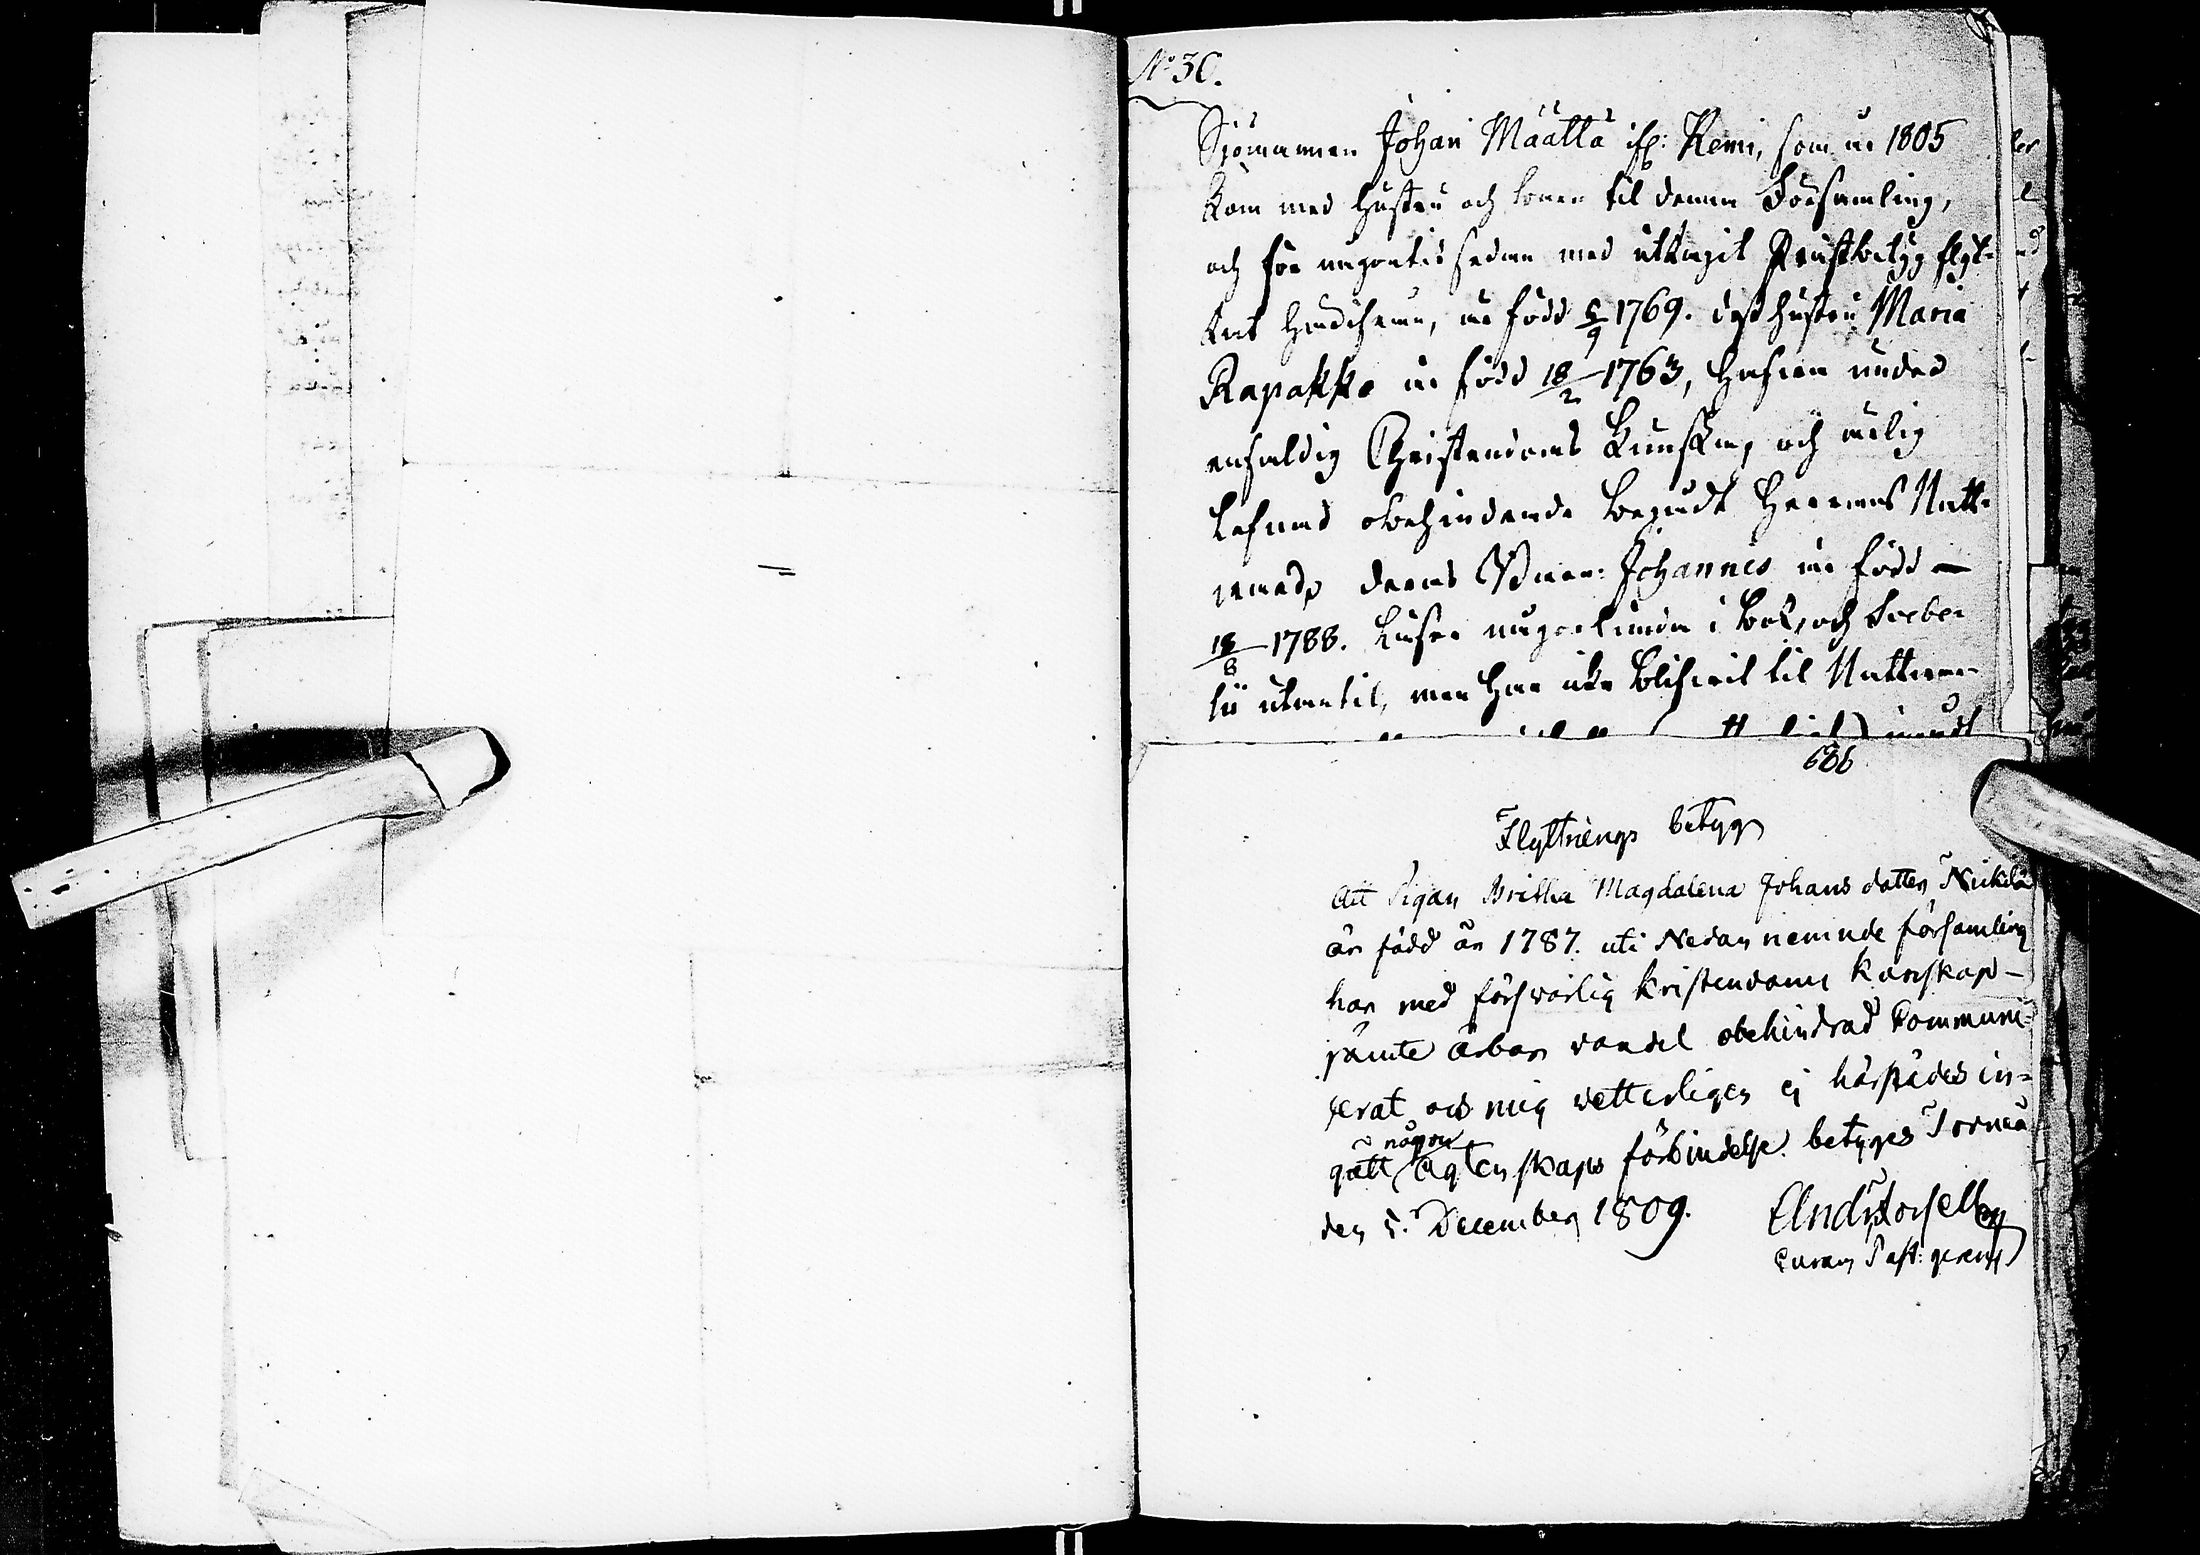 No 30.
Sjömannen Johan Määttä ifr: Kemi, som år 1805
kom med hustru och barn til denna Församling,
och för någon tid sedan med uttagit Prästbetyg flyt-
tat härifrån, är född 5/9 1769. dess hustru Maria
Rapakko är född 18/2 1763, hafva under
enfaldig Christendoms kunskap, och ärlig
lefnad obehindrade begådt Herrans Natt-
vard, deras Son: Johannes är född —
18/8 1788. läser någorlunda i bok, och
utantil, men har icke blifvit til Nattvar-
686
Flyttnings betyg
Att Pigan Britha Magdalena Johans dotter Nickilä
är född år 1787. uti Nedan nemnde församling
har med försvarlig kristendoms kunskap —
jämte ärbar vandel obehindrad kommuni-
cerat och mig vetterligen ej härstädes in-
gått någon ägtenskaps förbindelse. betyges Torneå
den 5. December 1809.
And
Curam Past: gerens